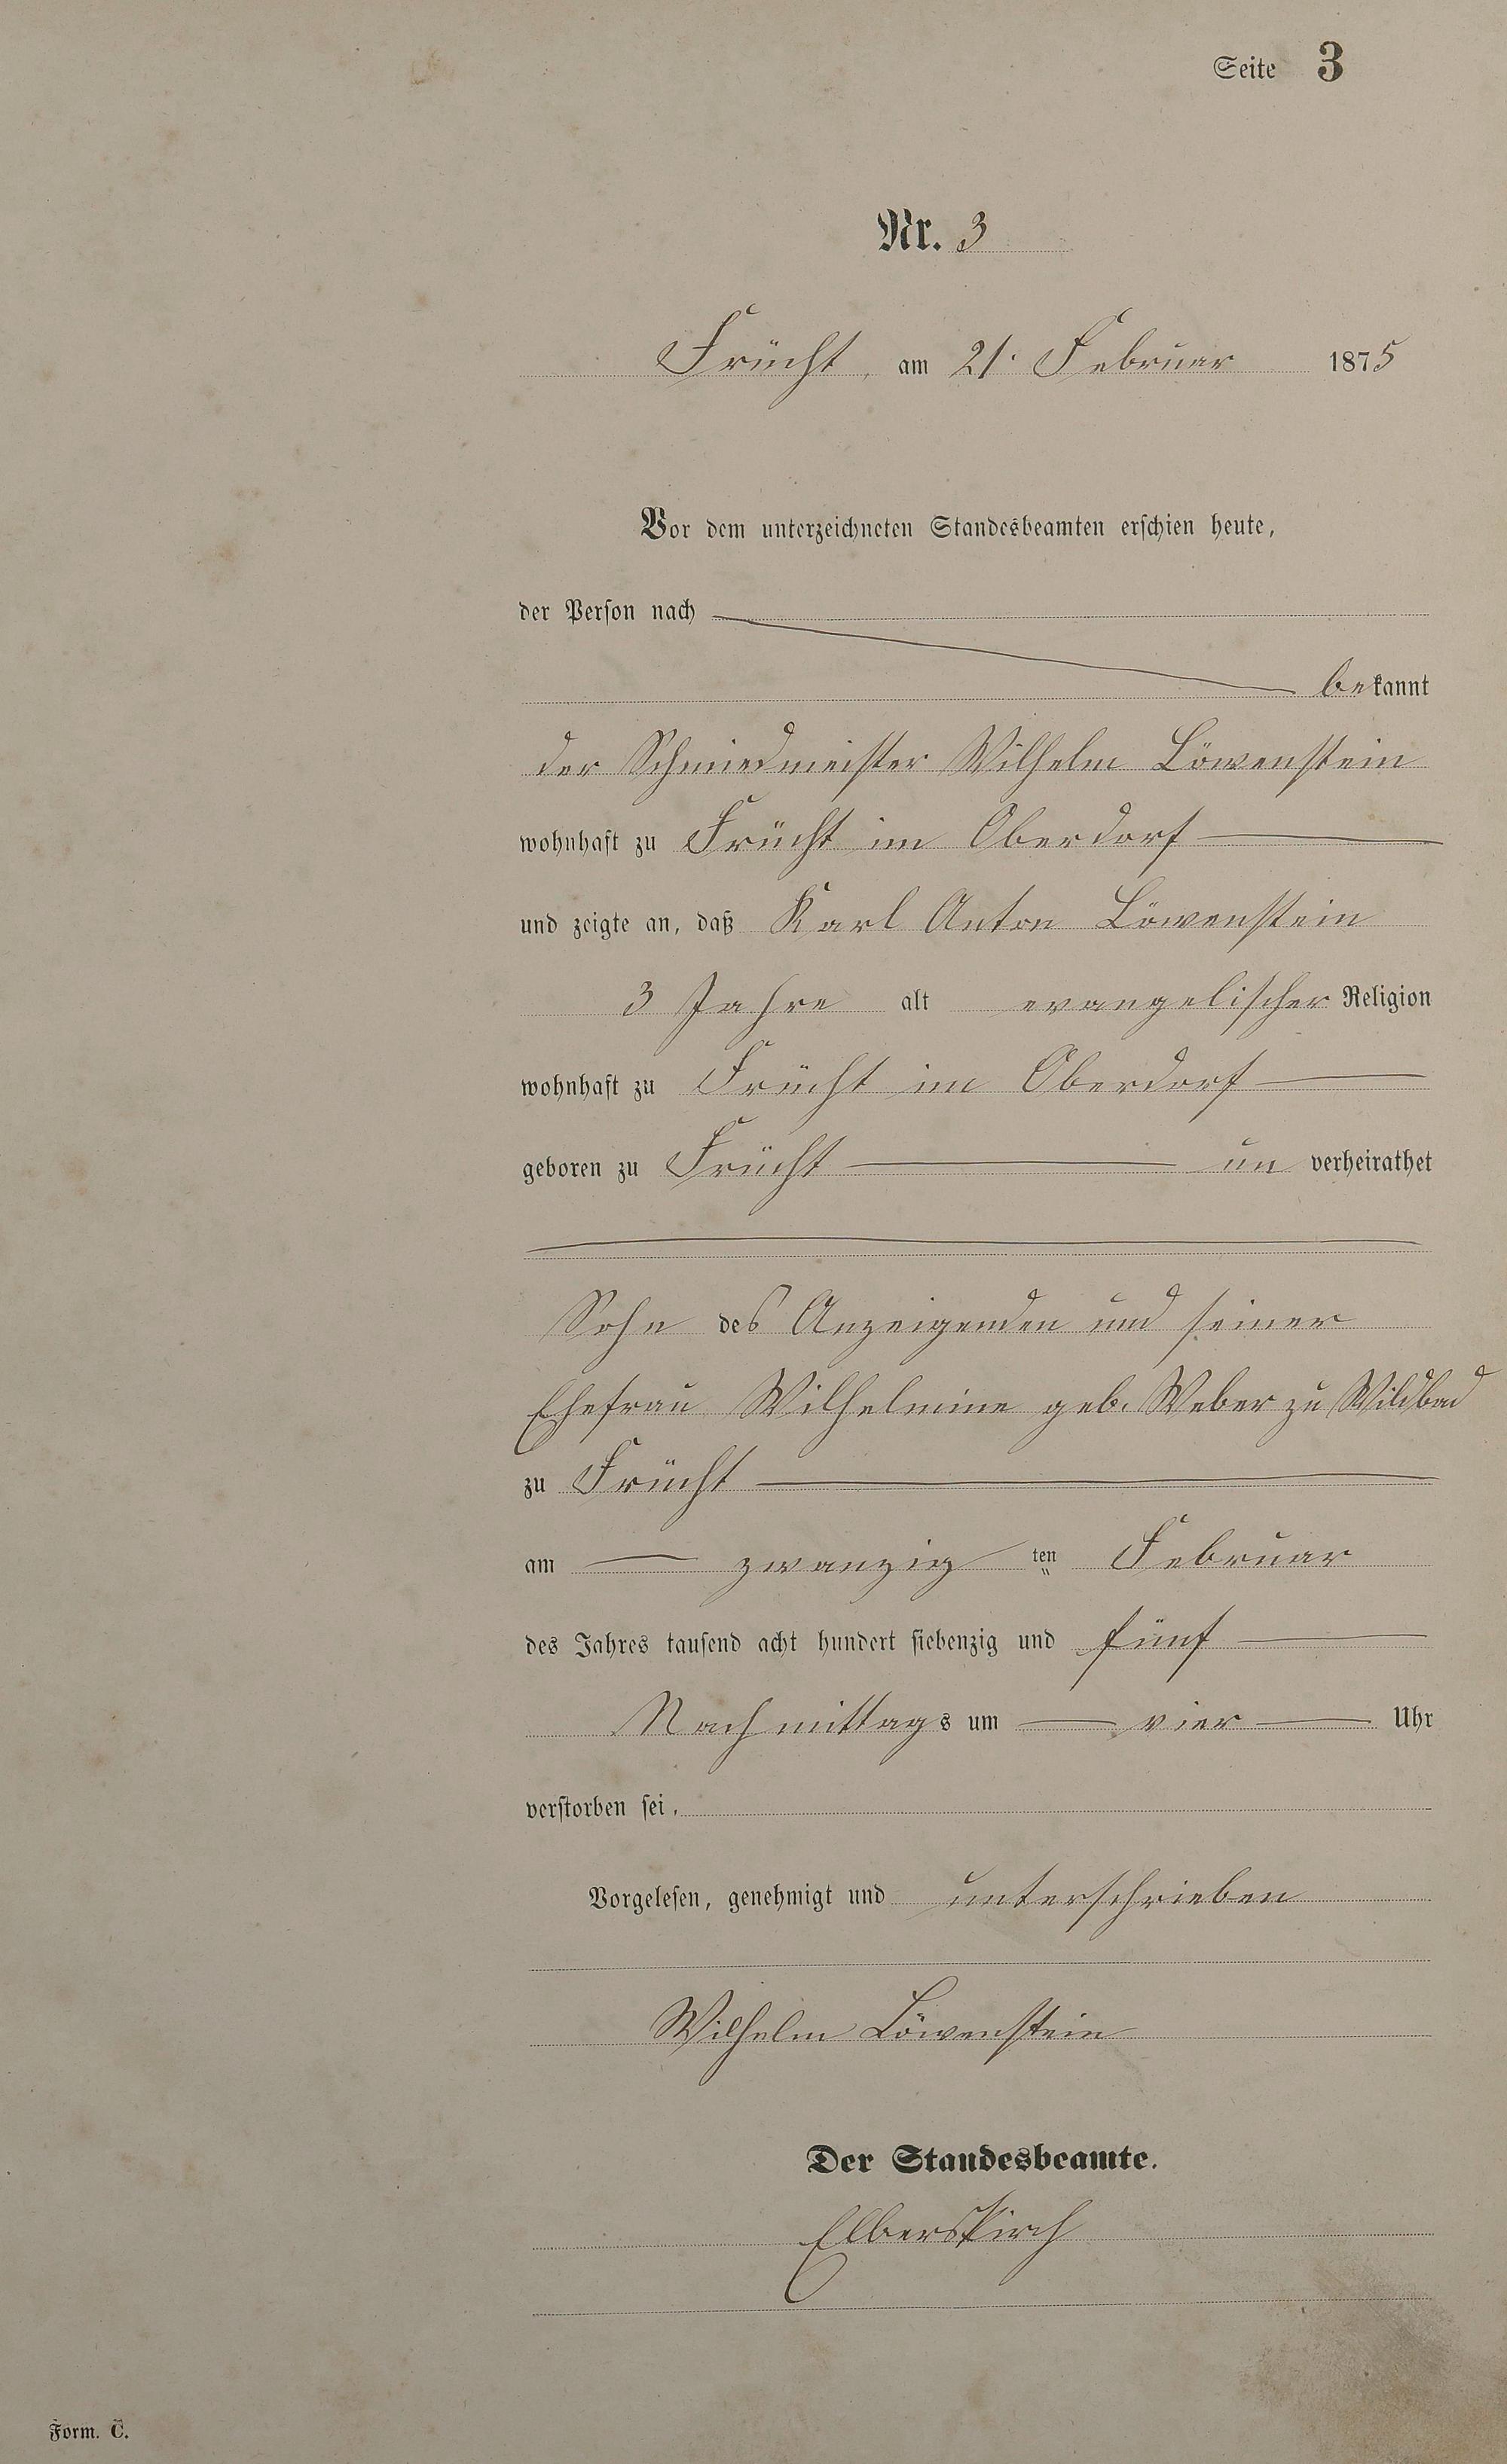 Seite 3
Nr. 3
Frücht, am 21. Februar 1875
Vor dem unterzeichneten Standesbeamten erschien heute,
der Person nach
bekannt
der Schmiedmeister Wilhelm Löwenstein
wohnhaft zu Frücht im Oberdorf
und zeigte an, daß Karl Anton Löwenstein
3 Jahre alt evangelischer Religion
wohnhaft zu Frücht im Oberdorf
geboren zu Frücht un verheirathet
Sohn des Anzeigenden und seiner
Ehefrau Wilhelmine geb. Weber zu Wildbad
zu Frücht
am zwanzig ten Februar
des Jahres tausend acht hundert siebenzig und fünf
Nachmittags um vier Uhr
verstorben sei.
Vorgelesen, genehmigt und unterschrieben
Wilhelm Löwenstein
Der Standesbeamte.
Elberskirch
Form. C.